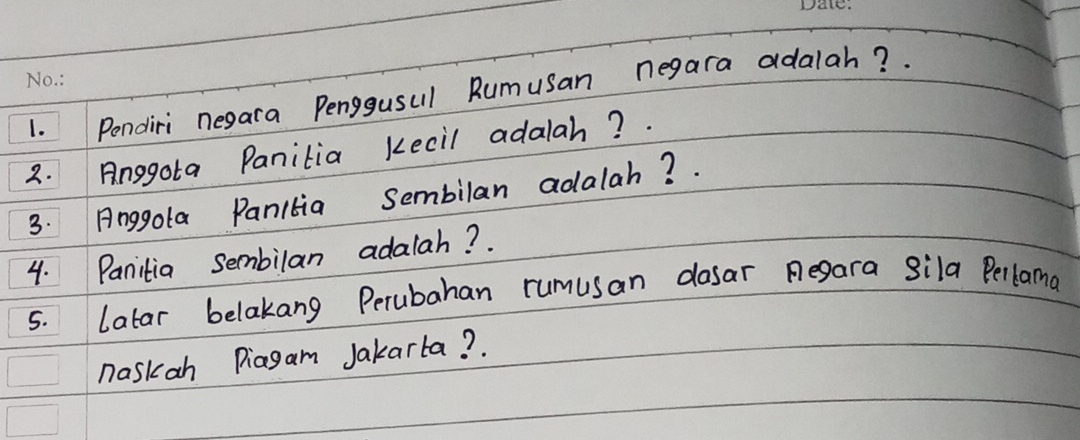 Date:
No.:
1. Pendiri negara Penggusul Rumusan negara adalah ?.
2. Anggota Panitia Kecil adalah ?.
3. Anggota Panitia Sembilan adalah ?.
4. Panitia sembilan adalah ?.
5. Latar belakang Perubahan rumusan dasar negara Sila Pertama
naskah Piagam Jakarta ?.